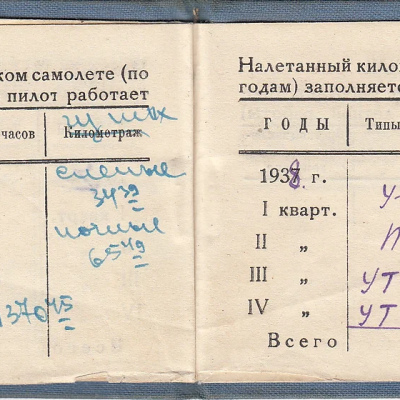 ком самолете (по
пилот работает
часов Километраж
слепые
34 39
ночные
65 49
Налетанный кило
годам) заполняетс
ГОДЫ Типы
1938 г.
I квартал.
II „
III „ УТ
IV „ УТ
Всего